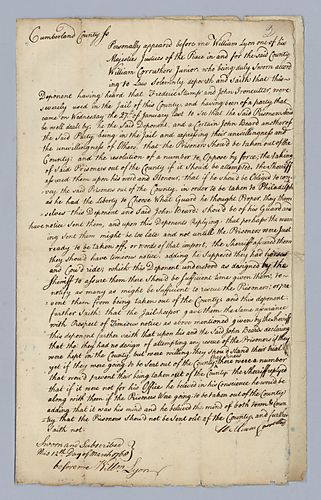 Cumberland County ss
Personally appeared before me William Lyon one of his
Majesties Justices of the Peace in and for the said County
William Carruthers Junior who being duly Sworn accord
ing to Law Solemnly deposeth and Saith that this
Deponent having heard that Frederick Stump and John Ironcutter were
severely used in the Jail of this County, and having been of a party that
came on Wednesday the 27th of January last to see that the Said Prisoners should
be well dealt by; He the Said Deponent, and a Certain John Beard another of
the Said Party being in the Jail and expressing their unwillingness and
the unwillingness of Others that the Prisoners should be taken out of the
County; and the resolution of a number to Oppose by force, the taking
of Said Prisoners out of the County if it should be attempted, the Sheriff
assured them upon his word and Honour, that if he should be Obliged to con
vey the said Prisoners out of the County in order to be taken to Philadelphia
as he had the liberty to Choose What Guard he thought Proper, they them
selves this Deponent and Said John Beard should be of his Guard and
have notice Sent them, and upon this Deponents Replying that perhaps the mean
ing Sent them might be too late and not until the Prisoners were Just
ready to be taken off, or words of that import, the Sheriff assured them
they should have timeous notice, adding he supposed they had horses
and Could ride, which this Deponent understood as designed by the
Sheriff to assure them there should be Sufficient time given them, to
notify as many as might be Sufficient to rescue the Prisoners, or pre
vent them from being taken out of the County and this deponent
further Saith that the Jailkeeper gave them the same assurance
with Respect of Timeous notice, as above mentioned given by the Sheriff
this deponent further Saith that upon his and the Said John Beards declaring
that tho they had no design of attempting any rescue of the Prisoners if they
were kept in the County but were willing they should stand their trial
yet if they were going to be sent out of the County there were a number
that would prevent their being taken out of the County, the Sheriff replyed
that if it were not for his Office he believed in his Conscience he would be
along with them if the Prisoners Was going to be taken out of the County
adding that it was his mind and he believed the mind of both town & Coun
try that the Prisoners should not be Sent out of the County, and further
Saith not
William Carruthers
Sworn and Subscribed
this 12th Day of March 1768
before me Wm Lyon